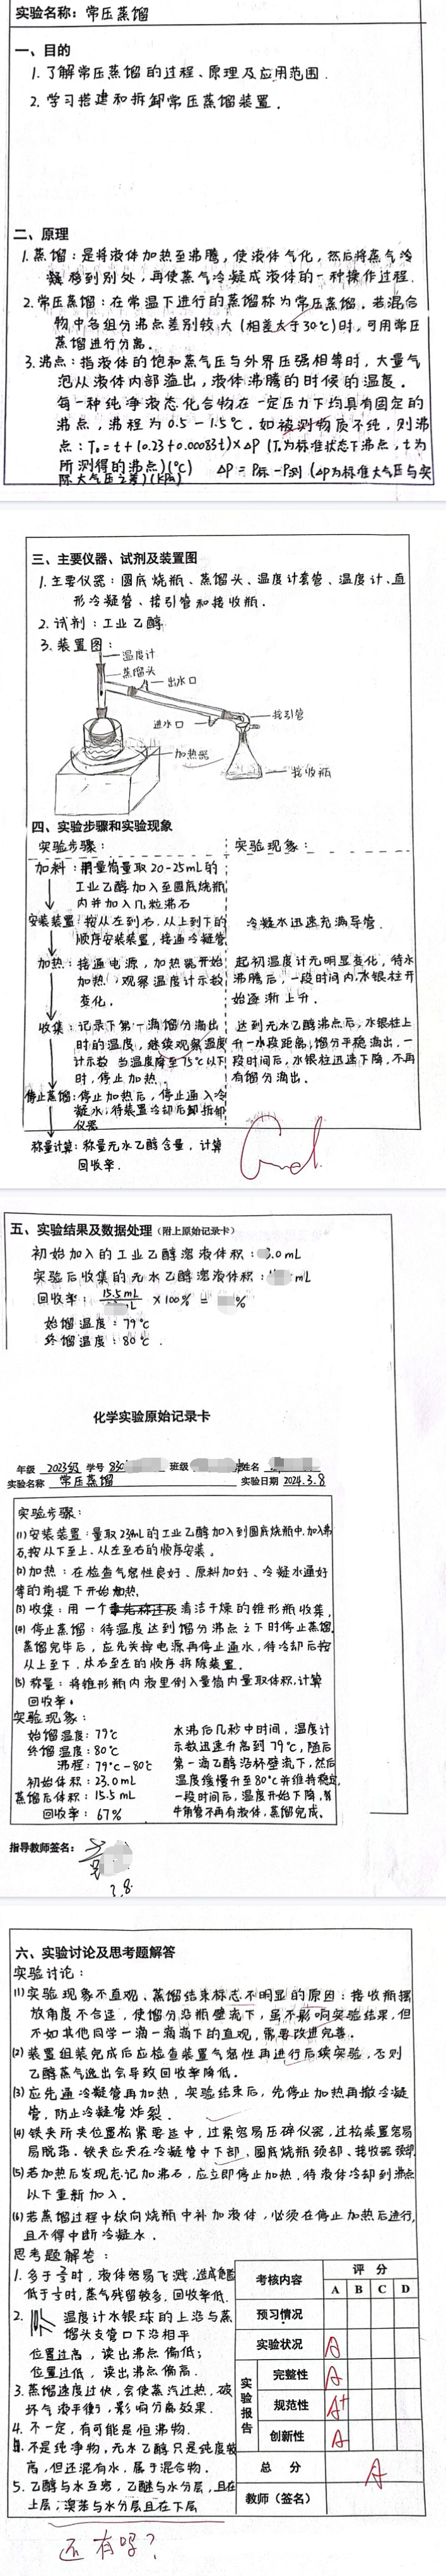 实验名称：常压蒸馏
一、目的
1. 了解常压蒸馏的过程、原理及应用范围.
2. 学习搭建和拆卸常压蒸馏装置.
二、原理
1. 蒸馏：是将液体加热至沸腾，使液体气化，然后将蒸气冷
凝移到别处，再使蒸气冷凝成液体的一种操作过程.
2. 常压蒸馏：在常温下进行的蒸馏称为常压蒸馏. 若混合
物中各组分沸点差别较大(相差大于30℃)时，可用常压
蒸馏进行分离.
3. 沸点：指液体的饱和蒸气压与外界压强相等时，大量气
泡从液体内部溢出，液体沸腾的时候的温度.
每一种纯净液态化合物在一定压力下均具有固定的
沸点，沸程为0.5－1.5℃. 如被测物质不纯，则沸
点：T₀=t+(0.23+0.00083t)×ΔP (T₀为标准状态下沸点，t为
所测得的沸点)(℃) ΔP = P标－P测 (ΔP为标准大气压与实
际大气压之差)(kPa)
三、主要仪器、试剂及装置图
1. 主要仪器：圆底烧瓶、蒸馏头、温度计套管、温度计、直
形冷凝管、接引管和接收瓶.
2. 试剂：工业乙醇
3. 装置图：
温度计
蒸馏头
出水口
接引管
进水口
加热器
接收瓶
四、实验步骤和实验现象
实验步骤： 实验现象：
加料：用量筒量取20-25mL的
工业乙醇加入至圆底烧瓶
内并加入几粒沸石
安装装置：按从左到右，从上到下的
顺序安装装置，接通冷凝管
冷凝水迅速充满导管.
加热：接通电源，加热器开始
加热，观察温度计示数
变化.
起初温度计无明显变化，待水
沸腾后，一段时间内，水银柱开
始逐渐上升.
收集：记录下第一滴馏分滴出
时的温度，继续观察温度
计示数 当温度降至75℃以下
时，停止加热.
达到无水乙醇沸点后，水银柱上
升一小段距离，馏分平稳滴出，一
段时间后，水银柱迅速下降，不再
有馏分滴出.
停止蒸馏：停止加热后，停止通入冷
凝水，待装置冷却后卸拆卸
仪器
称量计算：称量无水乙醇含量，计算
回收率.
Good.
五、实验结果及数据处理（附上原始记录卡）
初始加入的工业乙醇溶液体积：3.0mL
实验后收集的无水乙醇溶液体积： mL
回收率：15.5mL ×100% = %
始馏温度：79℃
终馏温度：80℃.
化学实验原始记录卡
年级 2023级 学号 830 班级 姓名
实验名称 常压蒸馏 实验日期 2024.3.8
实验步骤：
(1) 安装装置：量取23mL的工业乙醇加入到圆底烧瓶中，加入沸
石，按从下至上、从左至右的顺序安装.
(2) 加热：在检查气密性良好、原料加好、冷凝水通好
等的前提下开始加热.
(3) 收集：用一个清洁干燥的锥形瓶收集.
(4) 停止蒸馏：待温度达到馏分沸点之下时停止蒸馏.
蒸馏完毕后，应先关掉电源再停止通水，待冷却后按
从上至下、从右至左的顺序拆除装置.
(5) 称量：将锥形瓶内液里倒入量筒内量取体积，计算
回收率.
实验现象：
始馏温度：79℃
终馏温度：80℃
沸程：79℃－80℃
初始体积：23.0mL
蒸馏后体积：15.5mL
回收率：67%
水沸后几秒中时间，温度计
示数迅速升高到79℃，随后
第一滴乙醇沿杯壁流下，然后
温度缓慢升至80℃并维持稳定.
一段时间后，温度开始下降，
牛角管不再有液体，蒸馏完成.
指导教师签名：
3.8
六、实验讨论及思考题解答
实验讨论：
(1) 实验现象不直观、蒸馏结束标志不明显的原因：接收瓶摆
放角度不合适，使馏分沿瓶壁流下，虽不影响实验结果，但
不如其他同学一滴一滴滴下的直观，需要改进完善.
(2) 装置组装完成后应检查装置气密性再进行后续实验，否则
乙醇蒸气逸出会导致回收率降低.
(3) 应先通冷凝管再加热，实验结束后，先停止加热再撤冷凝
管，防止冷凝管炸裂.
(4) 铁夹所夹位置松紧要适中，过紧容易压碎仪器，过松装置容易
脱落、铁夹应夹在冷凝管中下部，圆底烧瓶颈部、接收器颈部
(5) 若加热后发现忘记加沸石，应立即停止加热，待液体冷却到沸点
以下重新加入.
(6) 若蒸馏过程中欲向烧瓶中补加液体，必须在停止加热后进行，
且不得中断冷凝水.
思考题解答：
1. 多于2/3时，液体容易飞溅，造成危险
低于1/3时，蒸气残留较多，回收率低.
2. 温度计水银球的上沿与蒸
馏头支管口下沿相平
位置过高，读出沸点偏低；
位置过低，读出沸点偏高.
3. 蒸馏速度过快，会使蒸汽过热，破
坏气液平衡，影响分离效果.
4. 不一定，有可能是恒沸物.
不是纯净物，无水乙醇只是纯度较
高，但还混有水，属于混合物.
5. 乙醇与水互溶，乙醚与水分层，且在
上层；溴苯与水分层且在下层
考核内容 评 分
A B C D
预习情况
实验状况 A
实验报告 完整性 A
规范性 A+
创新性 A
总 分 A
教师（签名）
还有吗？